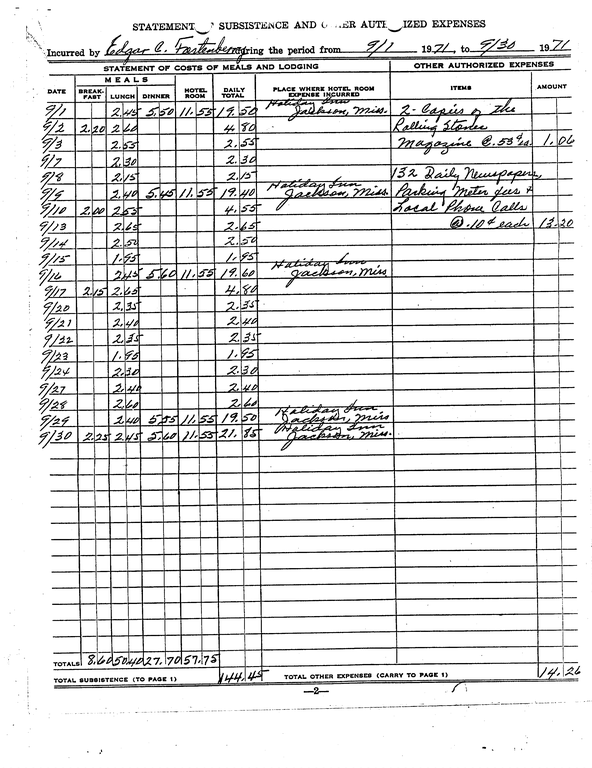 STATEMENT SUBSISTENCE AND AUTH IZED EXPENSES
Incurred by Edgar C. during the period from 9/1 1971, to 9/30 1971
STATEMENT OF COSTS OF MEALS AND LODGING OTHER AUTHORIZED EXPENSES
MEALS
DATE BREAK-FAST LUNCH DINNER HOTEL ROOM DAILY TOTAL PLACE WHERE HOTEL ROOM EXPENSE INCURRED ITEMS AMOUNT
9/1 2.45 5.50 11.55 19.50 Holiday Inn Jackson, Miss. 2 - Copies of the
9/2 2.20 2.60 4.80 Rolling Stones
9/3 2.55 2.55 Magazine @ .53¢ ea. 1.06
9/7 2.30 2.30
9/8 2.15 2.15 132 Daily Newspapers,
9/9 2.40 5.45 11.55 19.40 Holiday Inn Jackson, Miss. Parking Meter fees +
9/10 2.00 2.55 4.55 Local Phone Calls
9/13 2.65 2.65 @ .10¢ each 13.20
9/14 2.50 2.50
9/15 1.95 1.95
9/16 2.45 5.60 11.55 19.60 Holiday Inn Jackson, Miss
9/17 2.15 2.65 4.80
9/20 2.35 2.35
9/21 2.40 2.40
9/22 2.35 2.35
9/23 1.95 1.95
9/24 2.30 2.30
9/27 2.40 2.40
9/28 2.60 2.60
9/29 2.40 5.55 11.55 19.50 Holiday Inn Jackson, Miss
9/30 2.25 2.45 5.60 11.55 21.85 Holiday Inn Jackson, Miss.
TOTALS 8.60 50.40 27.70 57.75
TOTAL SUBSISTENCE (TO PAGE 1) 144.45 TOTAL OTHER EXPENSES (CARRY TO PAGE 1) 14.26
—2—